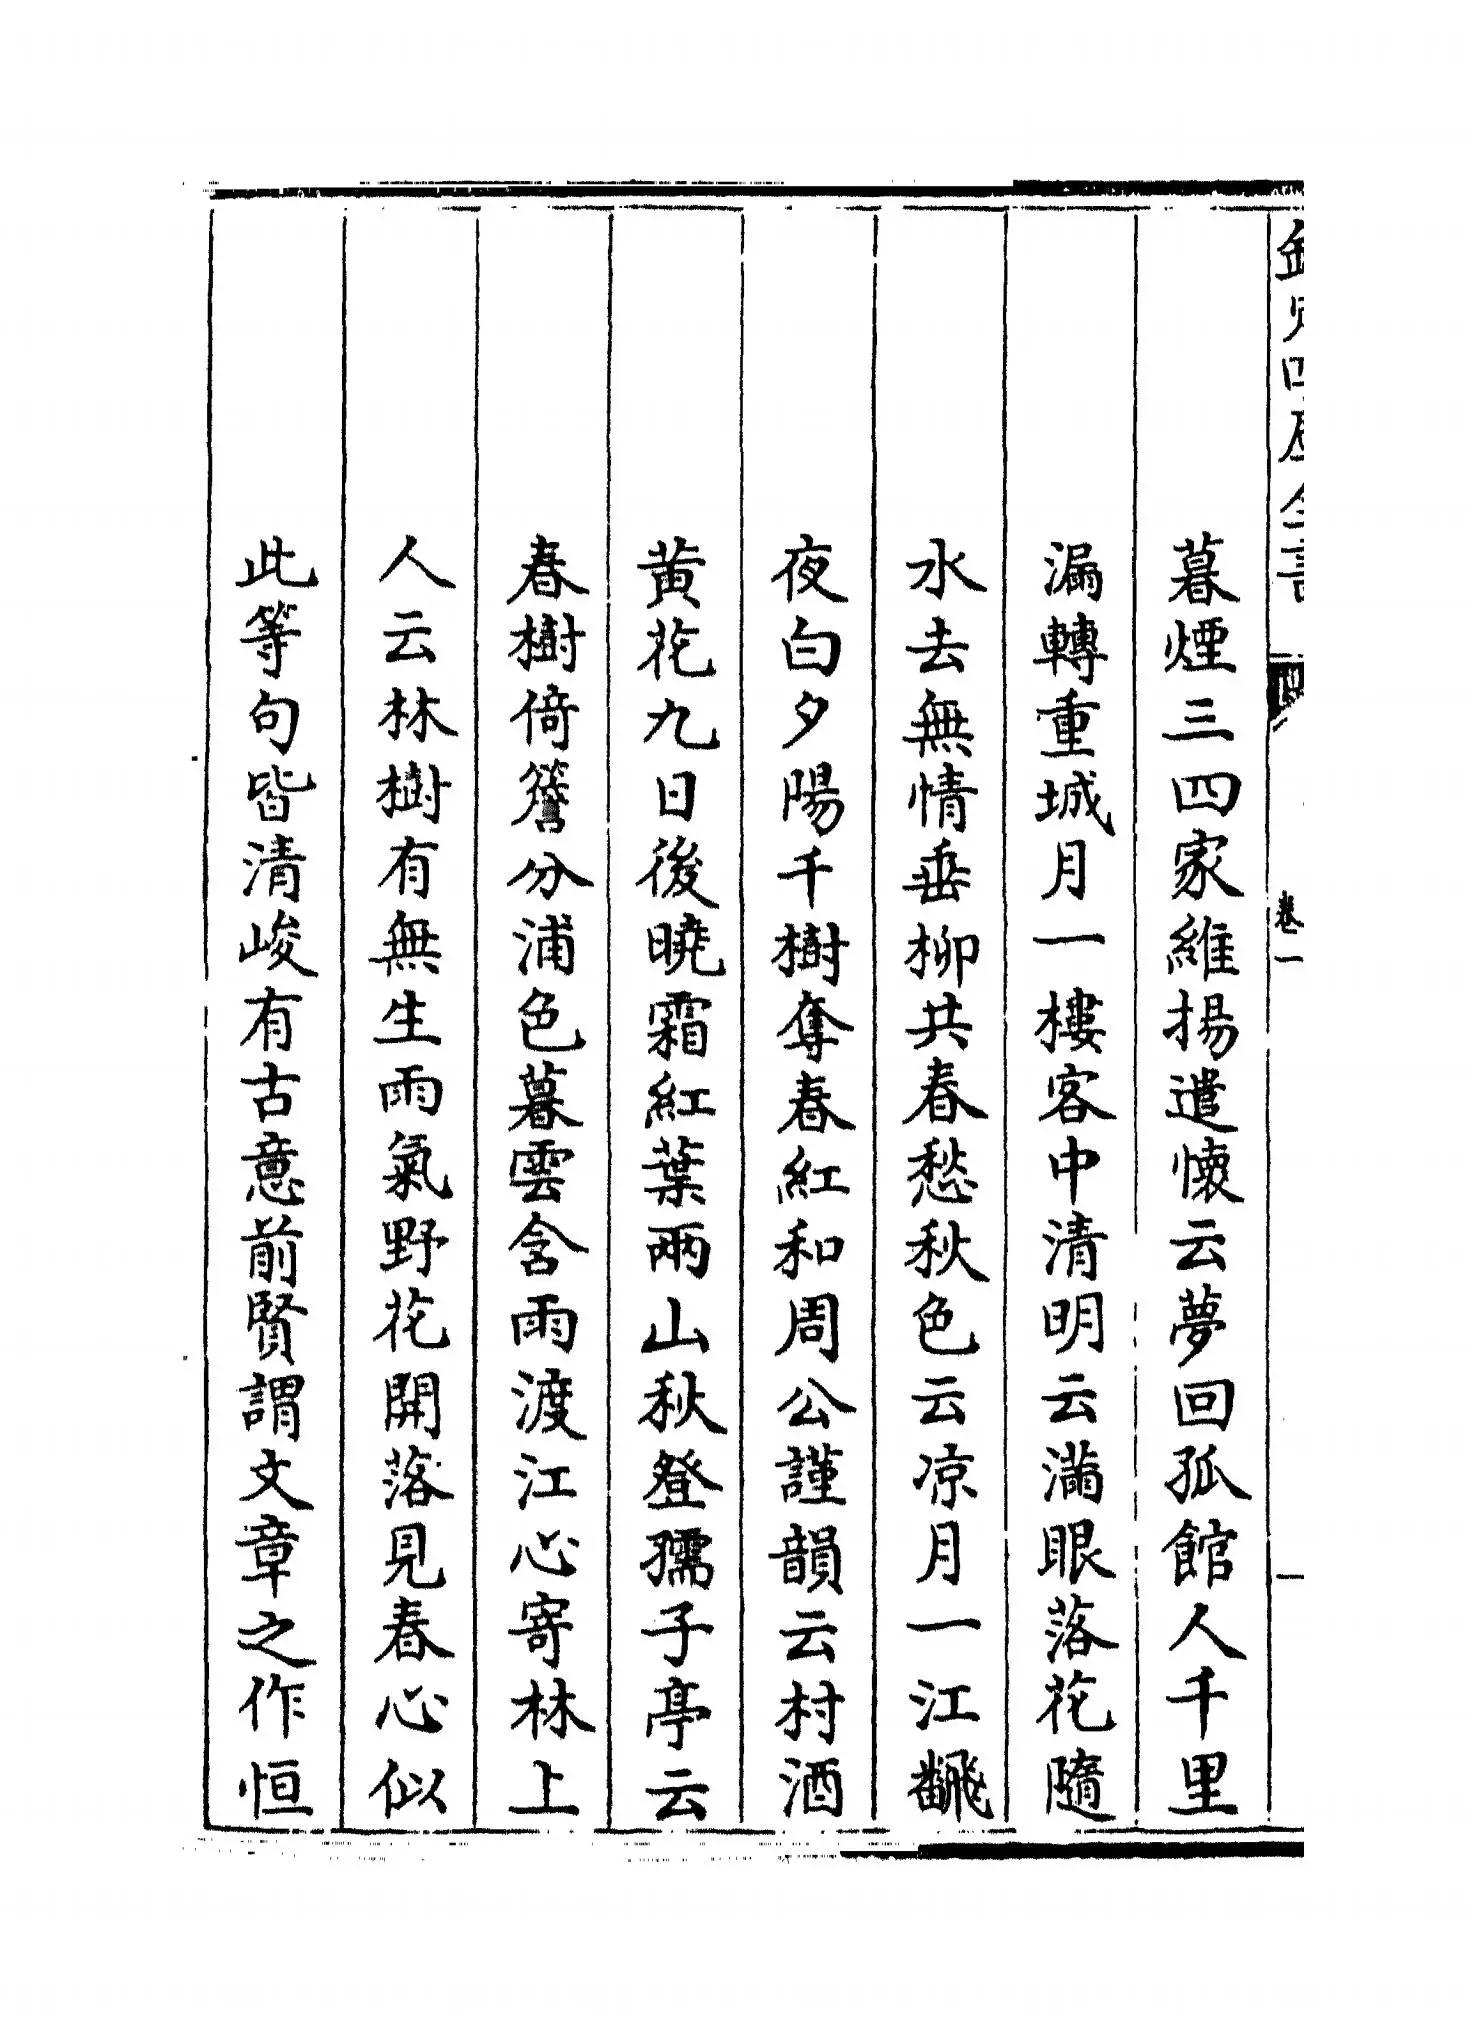 欽定四庫全書
卷一
暮煙三四家維揚遣懷云夢回孤館人千里
漏轉重城月一樓客中清明云滿眼落花隨
水去無情垂柳共春愁秋色云凉月一江飜
夜白夕陽千樹奪春紅和周公謹韻云村酒
黄花九日後曉霜紅葉兩山秋登孺子亭云
春樹倚簷分浦色暮雲含雨渡江心寄林上
人云林樹有無生雨氣野花開落見春心似
此等句皆清峻有古意前賢謂文章之作恒